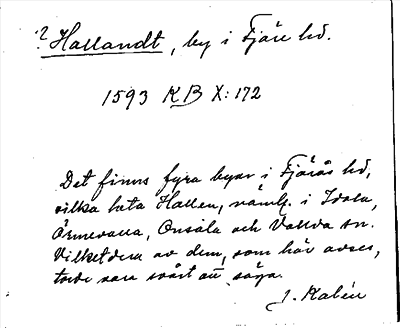 ? Hallandt, by i Fjäre hd.
1593 KB X: 172
Det finns fyra byar i Fjärås hd,
vilka heta Hallen, näml. i Idala,
Ölmevalla, Onsala och Vallda sn.
Vilketdera av dem, som här avses,
torde vara svårt att säga.
J. Kalén